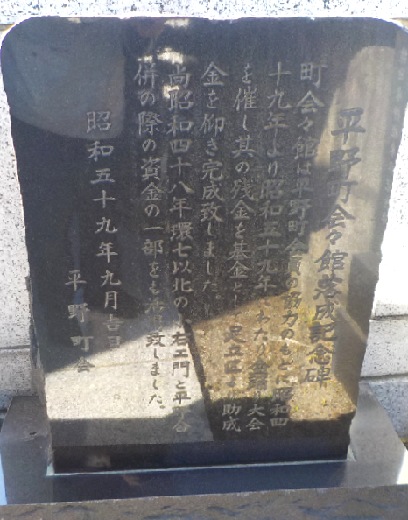 平野町会々館落成記念碑
町会々館は平野町会員の努力のもとに昭和四
十九年より昭和五十九年にわたり盆踊り大会
を催し其の残金を基金とし足立区の助成
金を仰ぎ完成致しました。
尚昭和四十八年環七以北の右エ門と平野会
併の際の資金の一部をも致しました。
昭和五十九年九月吉日
平野町会